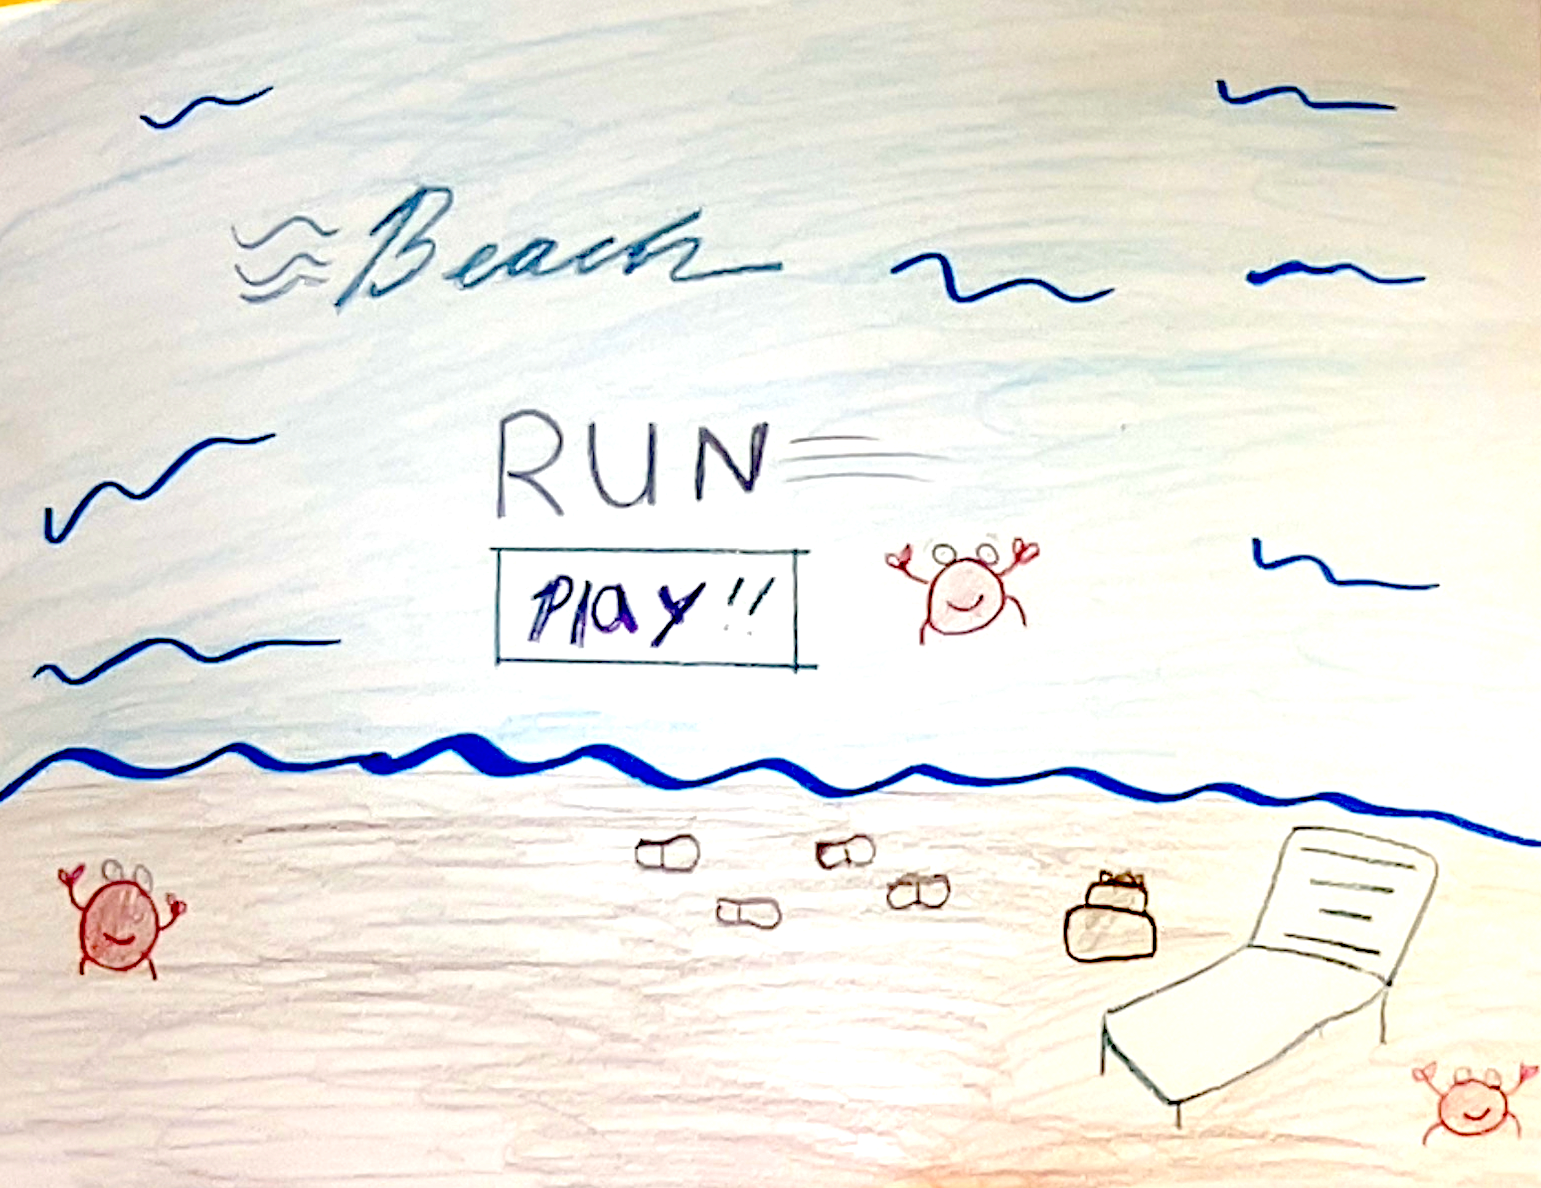 Beach
RUN
Play!!